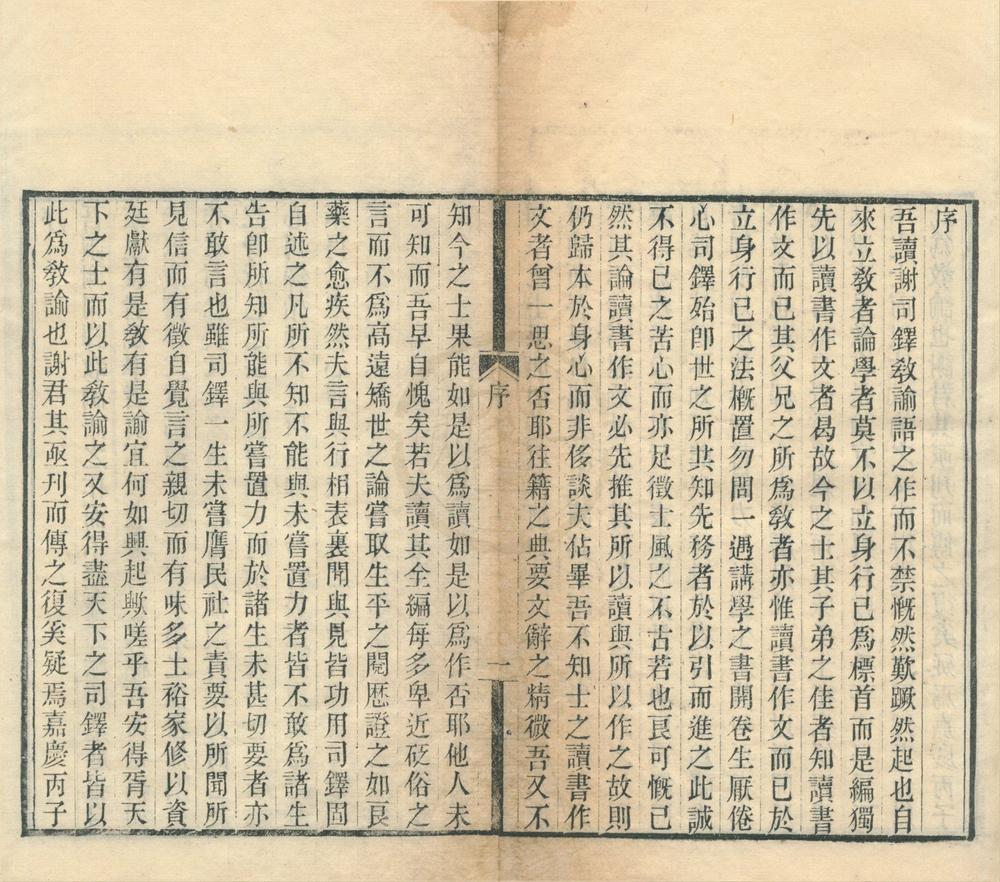 序
吾讀謝司鐸敎諭語之作而不禁慨然歎蹶然起也自
來立敎者論學者莫不以立身行已爲標首而是編獨
先以讀書作文者曷故今之士其子弟之佳者知讀書
作文而已其父兄之所爲敎者亦惟讀書作文而已於
立身行已之法槪置勿問一遇講學之書開卷生厭倦
心司鐸始卽世之所共知先務者於以引而進之此誠
不得已之苦心而亦足徵士風之不古若也良可慨已
然其論讀書作文必先推其所以讀與所以作之故則
仍歸本於身心而非侈談夫佔畢吾不知士之讀書作
文者曾一思之否耶往籍之典要文辭之精微吾又不
序
一
知今之士果能如是以爲讀如是以爲作否耶他人未
可知而吾早自愧矣若夫讀其全編每多卑近砭俗之
言而不爲高遠矯世之論嘗取生平之閱歷證之如良
藥之愈疾然夫言與行相表裏聞與見皆功用司鐸固
自述之凡所不知不能與未嘗置力者皆不敢爲諸生
告卽所知所能與所嘗置力而於諸生未甚切要者亦
不敢言也雖司鐸一生未嘗膺民社之責要以所聞所
見信而有徵自覺言之親切而有味多士裕家修以資
廷獻有是敎有是諭宜何如興起歟嗟乎吾安得胥天
下之士而以此敎諭之又安得盡天下之司鐸者皆以
此爲敎諭也謝君其亟刋而傳之復奚疑焉嘉慶丙子